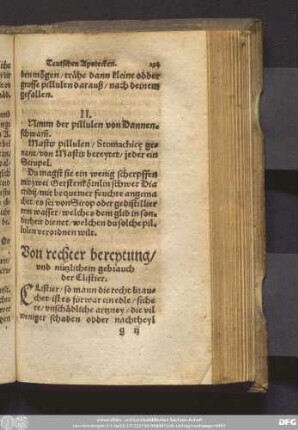 Teutschen Apotecken.
ben mögen / trähe dann kleine odder
grosse pillulen darauß / nach deynem
gefallen.
II.
Nimm der pillulen von Dannen-
schwam̃.
Mastix pillulen / Stomachice ge-
nent / von Mastix bereytet / jeder ein
Scrupel.
Du magst sie ein wenig scherpffen
mit zwei Gerstenkörnlin schwer Dia
gridij / mit bequemer feuchte angema
chet / es sei von Sirop oder gedistillier
tem wasser / welches dem glid in son-
derheit dienet / welchem du solche pil-
lulen verordnen wilt.
Von rechter bereytung /
vnd nützlichem gebrauch
der Clistier.
CListier / so mann die recht brau-
chet / ist es für war ein edle / siche
re / vnschädliche artzney / die vil
weniger schaden odder nachtheyl
g ij